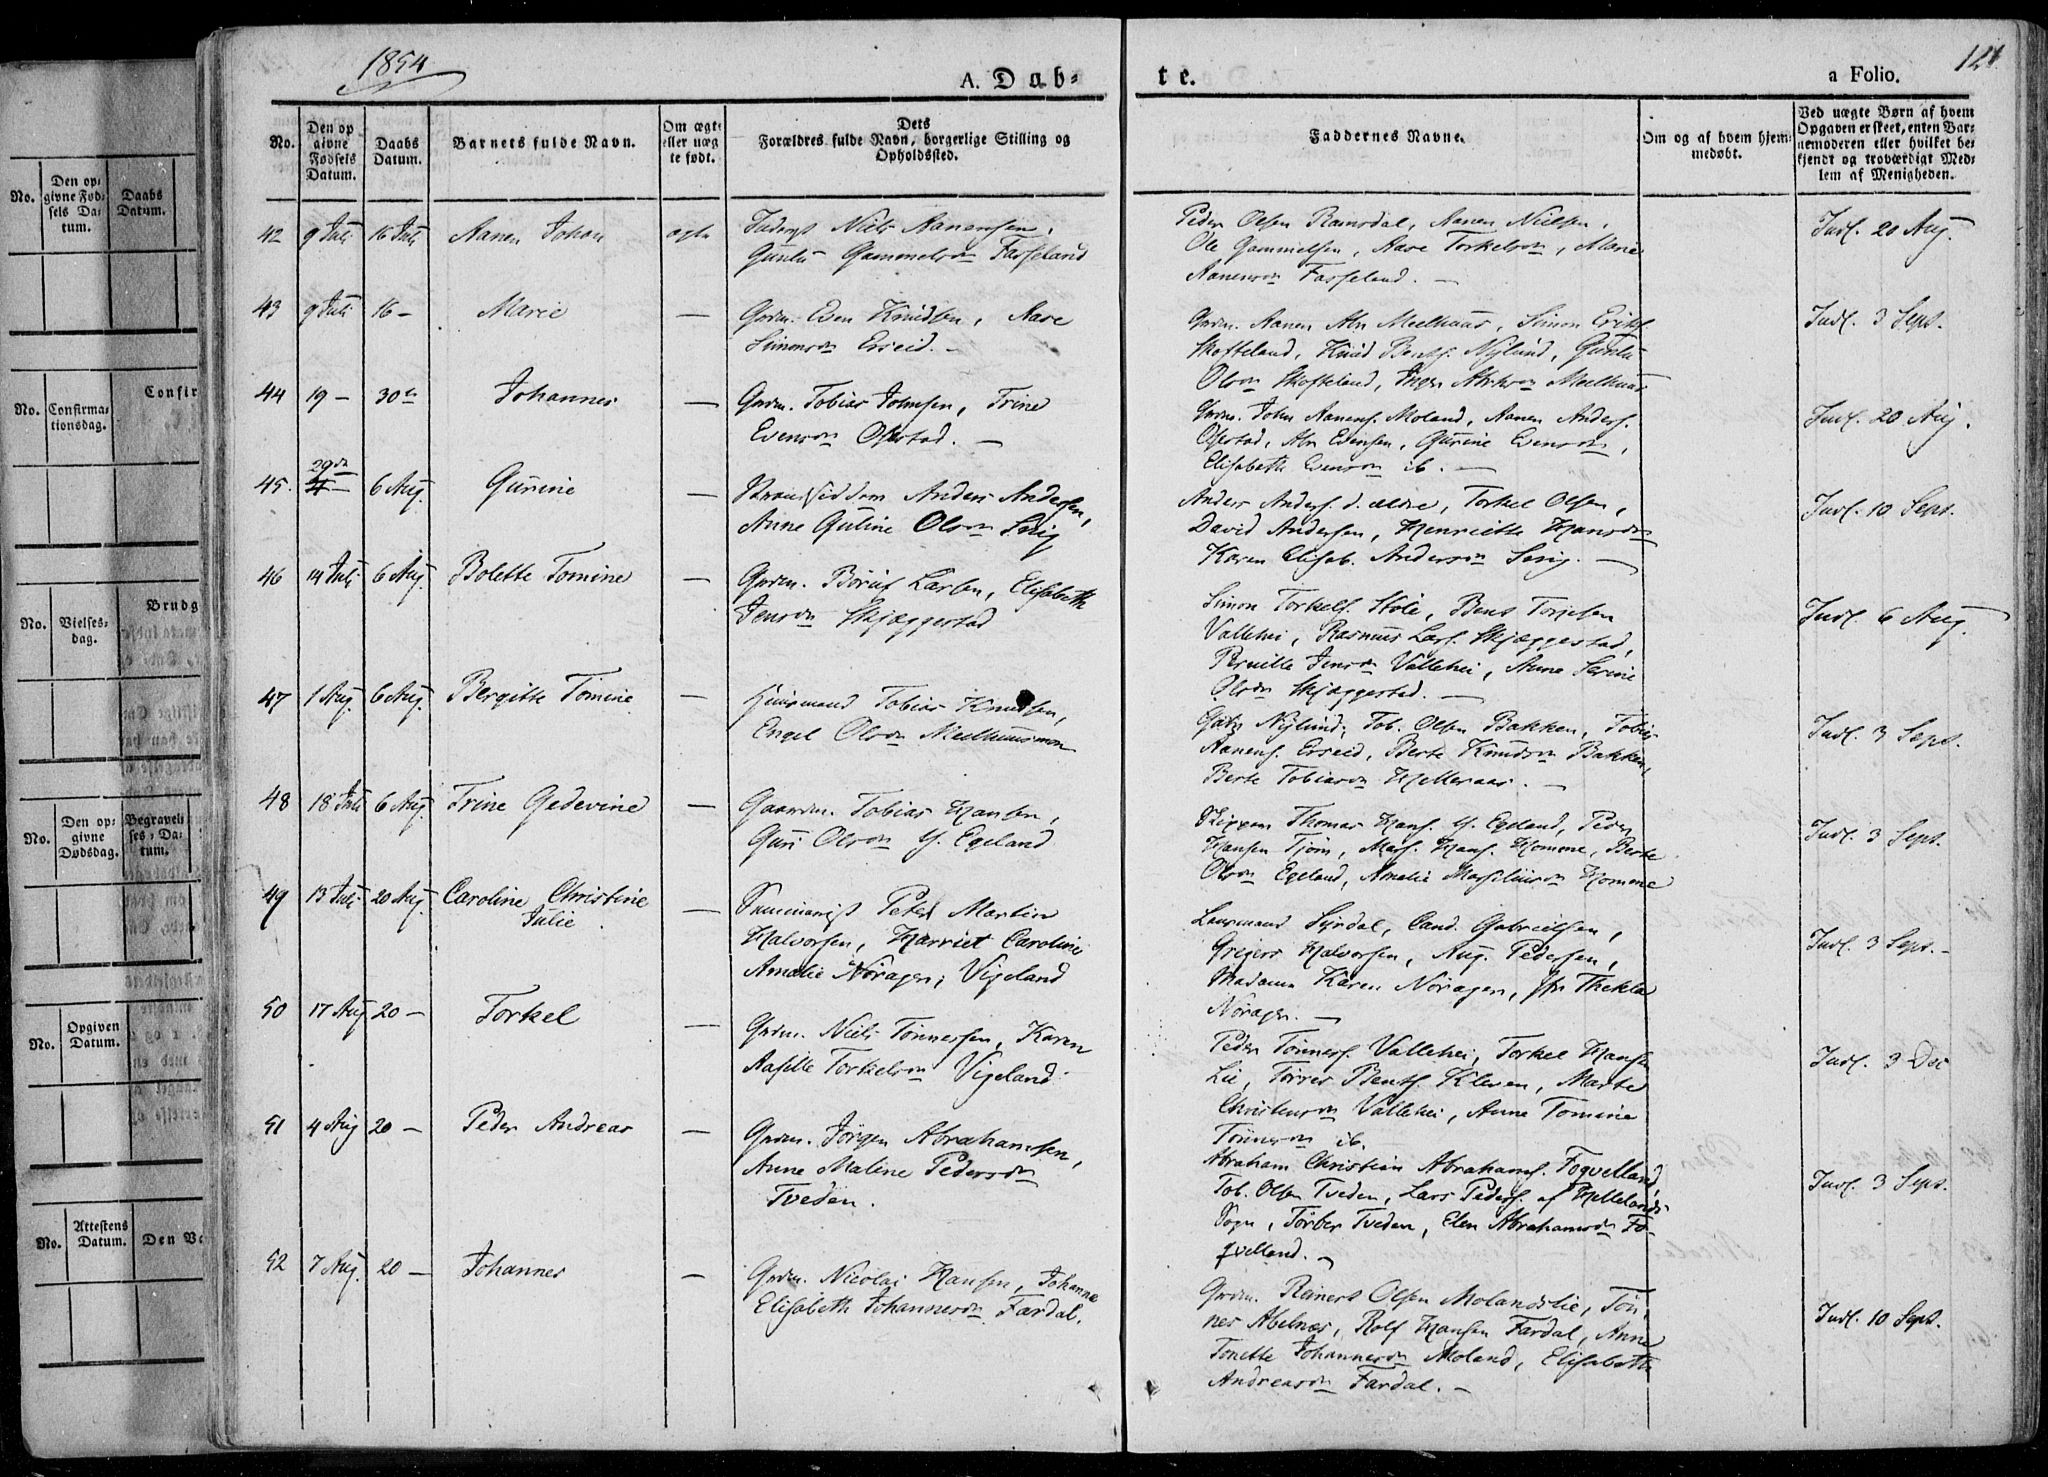 1854
A. Dab-
te.
a Folio.
121
No.
Den op
givne
Fødsels
Datum.
Daabs
Datum.
Barnets fulde Navn.
Om ægte
eller uæg
te født.
Dets
Forældres fulde Navn, borgerlige Stilling og
Opholdssted.
Faddernes Navne.
Om og af hvem hjem-
medøbt.
Ved uægte Børn af hvem
Opgaven er skeet, enten Bar-
nemoderen eller hvilket be-
kjendt og troværdigt Med-
lem af Menigheden.
42 9 Juli 16 Juli Aanen Johan ægte
Niels Aanensen,
Gunild Gammelsdn Fasseland
Peder Olsen Ramsdal, Aanen Nielsen,
Ole Gammelsen, Aase Torkelsdn, Marie
Aanensdn Fasseland. —
Indl. 20 Aug.
43 9 Juli 16 — Marie —
Grdm. Even Knudsen, Aase
Simonsdn Erseid. —
Grdm. Aanen Abr Meelhuus, Simon Eriks.
Skofteland, Knud Bents. Nylund, Gunild
Olsdn Skofteland, Inger Meelhuus
Indl. 3 Sept.
44 19 — 30te Johannes —
Grdm. Tobias Johnsen, Trine
Evensdn Ofstad. —
Grdm. John Aanens. Moland, Aanen Anders.
Ofstad, Abr Evensen, Gurine Evensdn,
Elisabeth Evensdn ib. —
Indl. 20 Aug.
45. 29de 6 Aug. Gurine —
Strandsidder Anders Andersen,
Anne Guline Olsdn Snig
Anders Anders. d. ældre, Torkel Olsen,
David Andersen, Henriette Hansdn
Karen Elisab. Andersdn Snig. —
Indl. 10 Sept.
46 14 Juli 6 Aug. Bolette Tomine —
Grdm. Børuf Larsen, Elisabeth
Jensdn Skjæggestad
Simon Torkels. Stole, Bent Torjesen
Vallehei, Rasmus Lars. Skjæggestad,
Pernille Jensdn Vallehei, Anne Serine
Olsdn Skjæggestad. —
Indl. 6 Aug.
47 1 Aug. 6 Aug. Bergitte Tomine —
Huusmand Tobias Knudsen,
Engel Olsdn Meelhuusmoen
Nylund, Tob. Olsen Bakken, Tobias
Aanens. Erseid, Berte Knudsdn Bakken,
Berte Tobiasdn Helleraas. —
Indl. 3 Sept.
48 18 Juli 6 Aug. Trine Gedevine —
Gaardm. Tobias Hansen,
Guri Olsdn Y. Egeland
Skipper Thomas Hans. Y. Egeland, Peder
Hansen Tjom, Mars. Hans. Homene, Berte
Olsdn Egeland, Amalie Marseliusdn Homene
Indl. 3 Sept.
49 13 Juli 20 Aug. Caroline Christine
Julie —
Seminarist Peter Martin
Halvorsen, Harriet Caroline
Amalie Nöragen, Vigeland
Lensmand Syrdal, Cand. Gabrielsen,
Gregers Halvorsen, Aug. Pedersen,
Madame Karen Nöragen, Thekla
Nöragen. —
Indl. 3 Sept. —
50 17 Aug 20 — Torkel —
Grdm. Niels Tönnessen, Karen
Aasille Torkelsdn Vigeland
Peder Tönnes. Vallehei, Torkel Hansen
Lie, Törres Bents. Kleven, Marte
Christensdn Vallehei, Anne Tomine
Tönnesdn ib.
Indl. 3 Dec
51 4 Aug 20 — Peder Andreas —
Grdm. Jörgen Abrahamsen,
Anne Maline Pedersdn
Tveden.
Abraham Christian Abrahams. Foqvelland,
Tob. Olsen Tveden, Lars Peders. af Hellelands
Sogn, Törber Tveden, Elen Abrahamsdn Fo-
qvelland. —
Indl. 3 Sept.
52 7 Aug. 20 — Johannes —
Grdm. Nicolai Hansen, Johanne
Elisabeth Johannesdn Fardal.
Grdm. Reinert Olsen Molandslie, Tön-
nes Abelnæs, Rolf Hansen Fardal, Anne
Tonette Johannesdn Moland, Elisabeth
Andreasdn Fardal. —
Indl. 10 Sept.
No.
Den op-
givne Fød-
sels Da-
tum.
Daabs
Datum.
No.
Confirma-
tionsdag.
Confir
No.
Vielses-
dag.
Brudg
No.
Den op-
givne
Dødsdag.
Begravel-
ses-Da-
tum.
No.
Opgiven
Datum.
No.
Attestens
Datum.
Den Va